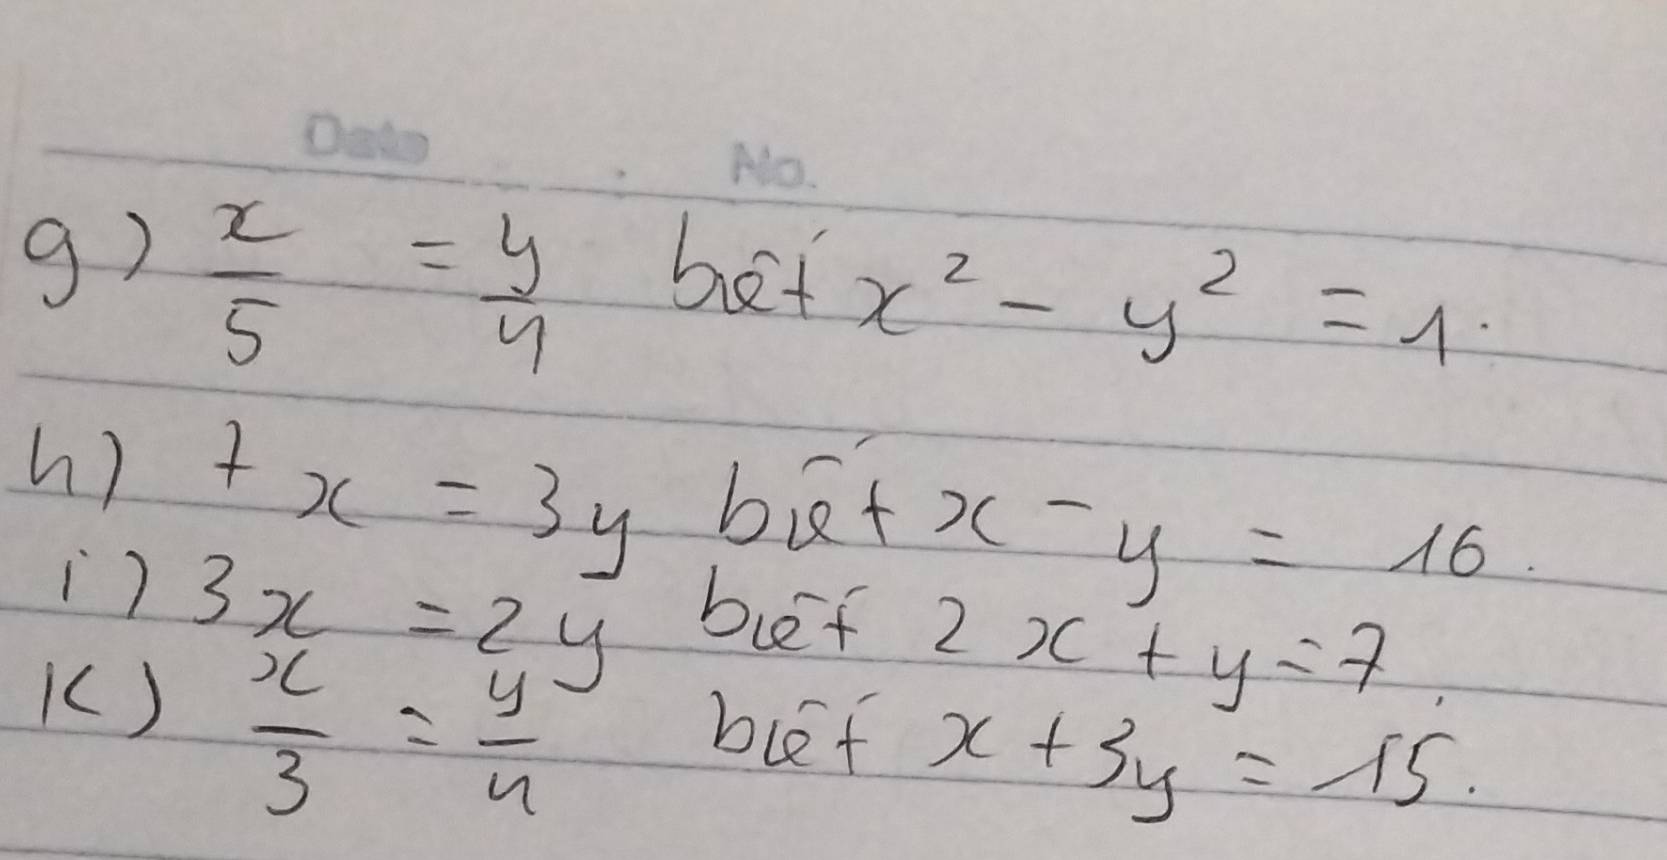 Date No.
g) x/5 = y/4 biết x² - y² = 1.
h) 7x = 3y biết x - y = 16.
i) 3x = 2y biết 2x + y = 7.
k) x/3 = y/4 biết x + 3y = 15.